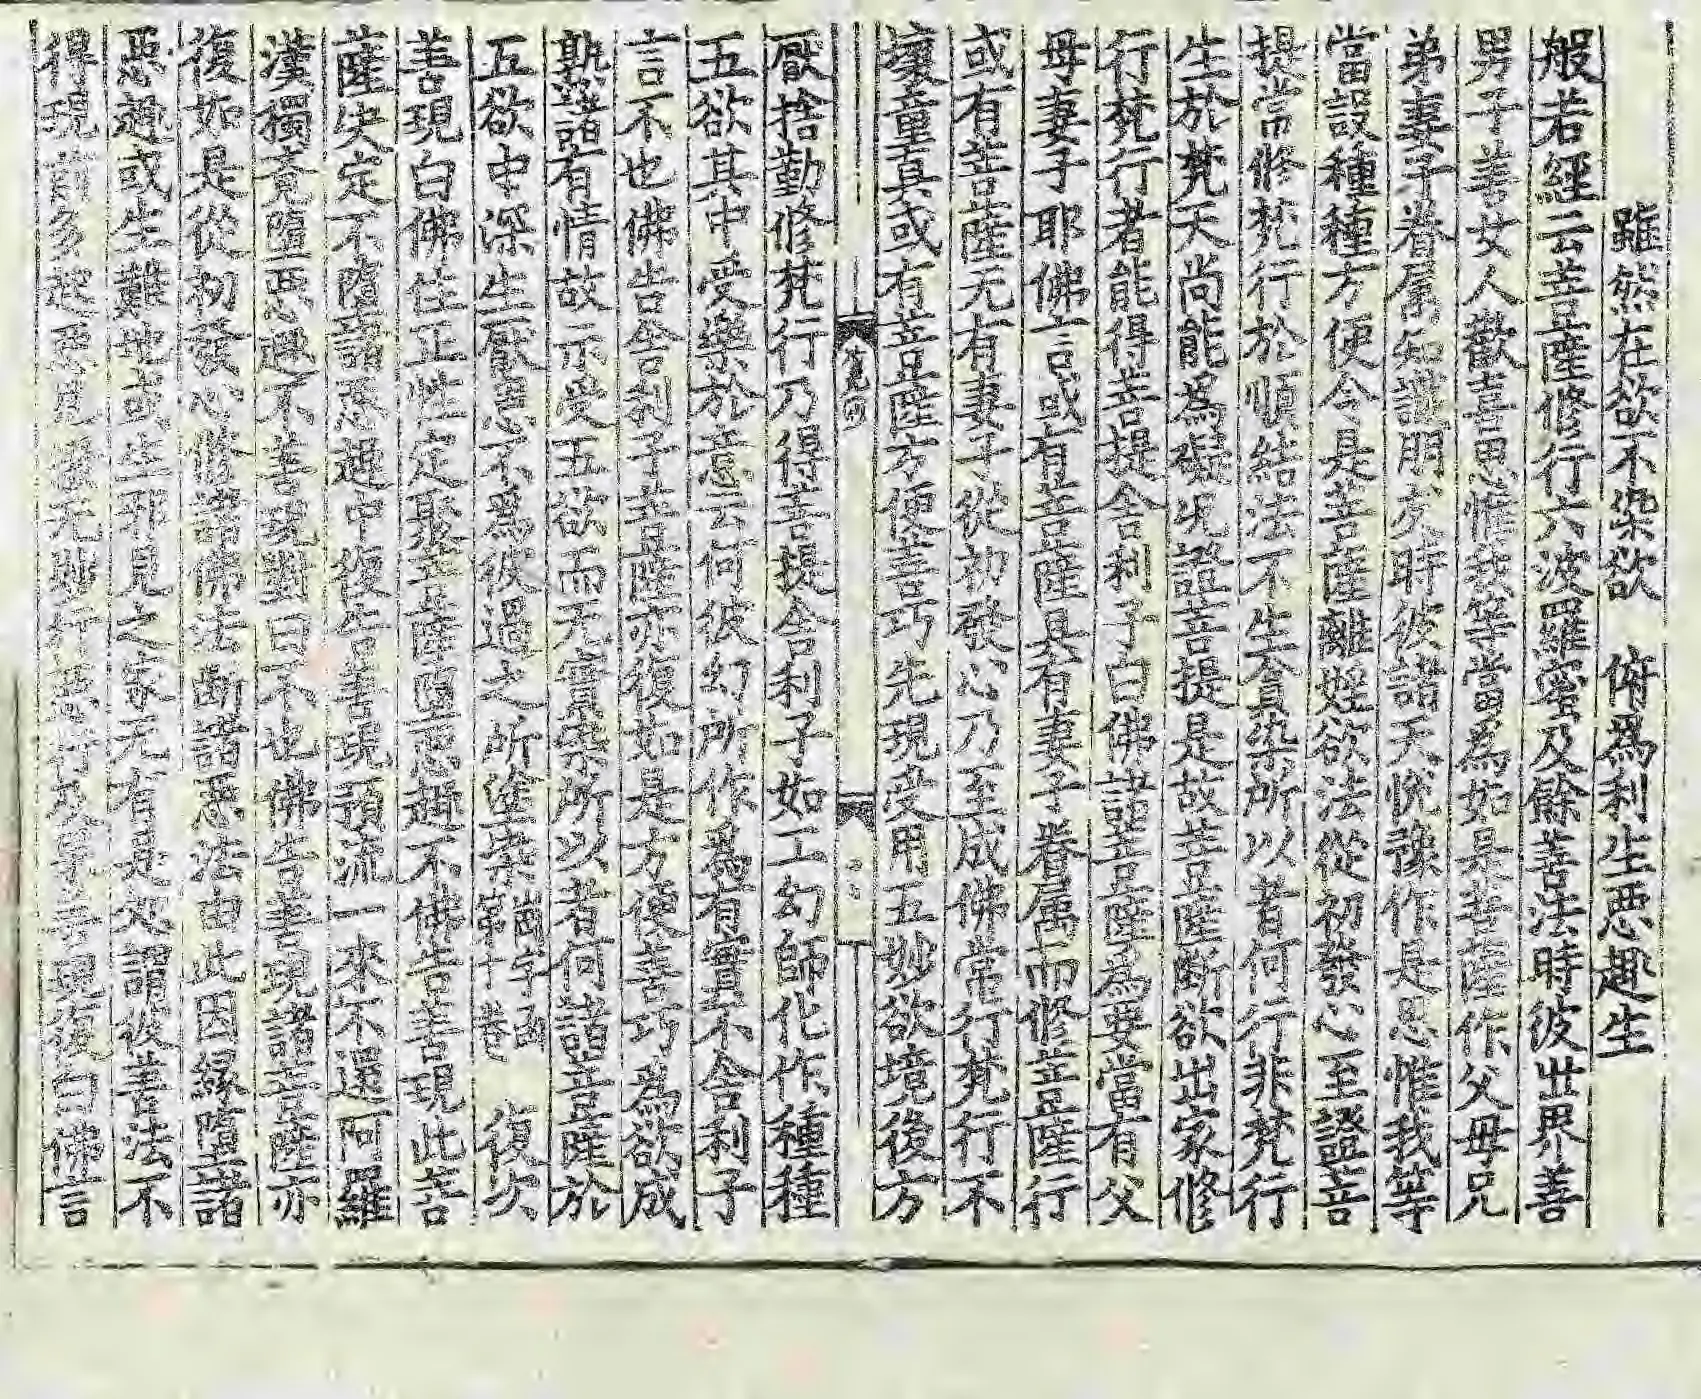 雖然在欲不染欲　俯爲利生惡趣生
般若經云菩薩修行六波羅蜜及餘善法時彼世界善
男子善女人歡喜思惟我等當為如是菩薩作父母兄
弟妻子眷属知識朋友時彼諸天悅豫作是思惟我等
當設種種方便令是菩薩離婬欲法從初發心至證菩
提常修梵行於順結法不生貪染所以者何行非梵行
生於梵天尚能爲礙况證菩提是故菩薩斷欲出家修
行梵行者能得菩提舍利子白佛諸菩薩爲要當有父
母妻子耶佛言或有菩薩具有妻子眷属而修菩薩行
或有菩薩无有妻子從初發心乃至成佛常行梵行不
壞童真或有菩薩方便善巧先現受用五妙欲境後方
厭捨勤修梵行乃得菩提舍利子如工幻師化作種種
五欲其中受樂於意云何彼幻所作爲有實不舍利子
言不也佛告舍利子菩薩亦復如是方便善巧爲欲成
熟諸有情故示受五欲而无實染所以者何諸菩薩於
五欲中深生厭患不爲彼過之所塗染崗字函第十卷　復次
善現白佛住正性定聚菩薩墮惡趣不佛告善現此菩
薩决定不墮諸惡趣中復告善現預流一來不還阿羅
漢獨覺墮惡趣不善現對曰不也佛告善現諸菩薩亦
復如是從初發心修諸佛法断諸惡法由此因緣墮諸
惡趣或生難地或生邪見之家无有是處謂彼善法不
得現前多起惡見撥无妙行惡行及果善現復白佛言